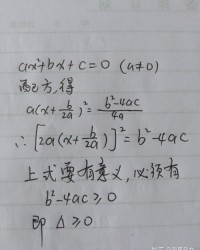 ax²+bx+c=0 (a≠0)
配方，得
a(x+b/2a)²=b²-4ac/4a
∴[2a(x+b/2a)]²=b²-4ac
上式要有意义，必须有
b²-4ac≥0
即 Δ≥0